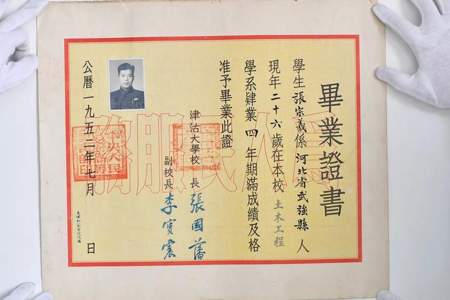 畢業證書
學生張宗義係河北省武強縣人
現年二十六歲在本校土木工程
學系肄業四年期滿成績及格
准予畢業此證
津沽大學校長張國藩
副校長李寶震
公曆一九五二年七月 日
為人民服務